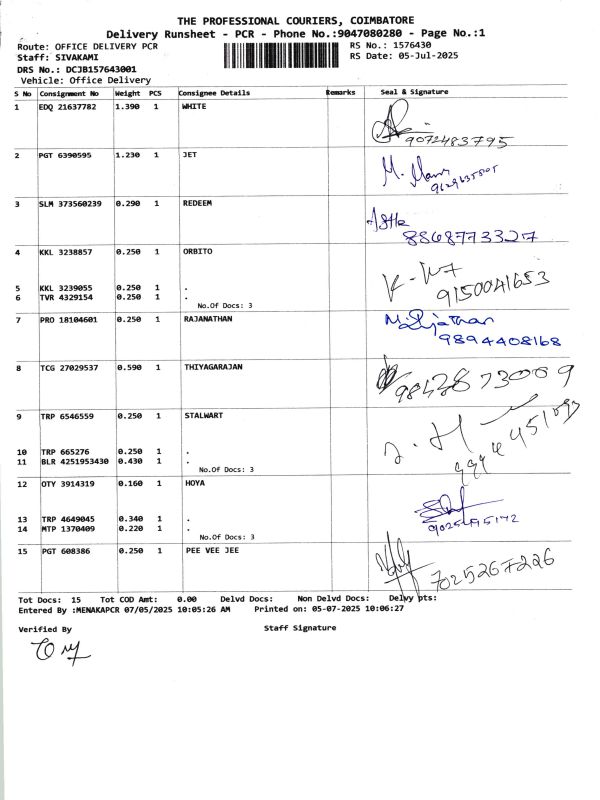 THE PROFESSIONAL COURIERS, COIMBATORE
Delivery Runsheet - PCR - Phone No.:9047080280 - Page No.:1
Route: OFFICE DELIVERY PCR RS No.: 1576430
Staff: SIVAKAMI RS Date: 05-Jul-2025
DRS No.: DCJB157643001
Vehicle: Office Delivery
S No Consignment No Weight PCS Consignee Details Remarks Seal & Signature
1 EDQ 21637782 1.390 1 WHITE
9072483795
2 PGT 6390595 1.230 1 JET
M.
3 SLM 373560239 0.290 1 REDEEM
8868773327
4 KKL 3238857 0.250 1 ORBITO
5 KKL 3239055 0.250 1 .
9150041653
6 TVR 4329154 0.250 1 .
No.Of Docs: 3
7 PRO 18104601 0.250 1 RAJANATHAN
9894408168
8 TCG 27029537 0.590 1 THIYAGARAJAN
9 TRP 6546559 0.250 1 STALWART
10 TRP 665276 0.250 1 .
11 BLR 4251953430 0.430 1 .
No.Of Docs: 3
12 OTY 3914319 0.160 1 HOYA
13 TRP 4649045 0.340 1 .
14 MTP 1370409 0.220 1 .
No.Of Docs: 3
15 PGT 608386 0.250 1 PEE VEE JEE
7025267226
Tot Docs: 15 Tot COD Amt: 0.00 Delvd Docs: Non Delvd Docs: Delvy pts:
Entered By :MENAKAPCR 07/05/2025 10:05:26 AM Printed on: 05-07-2025 10:06:27
Verified By Staff Signature